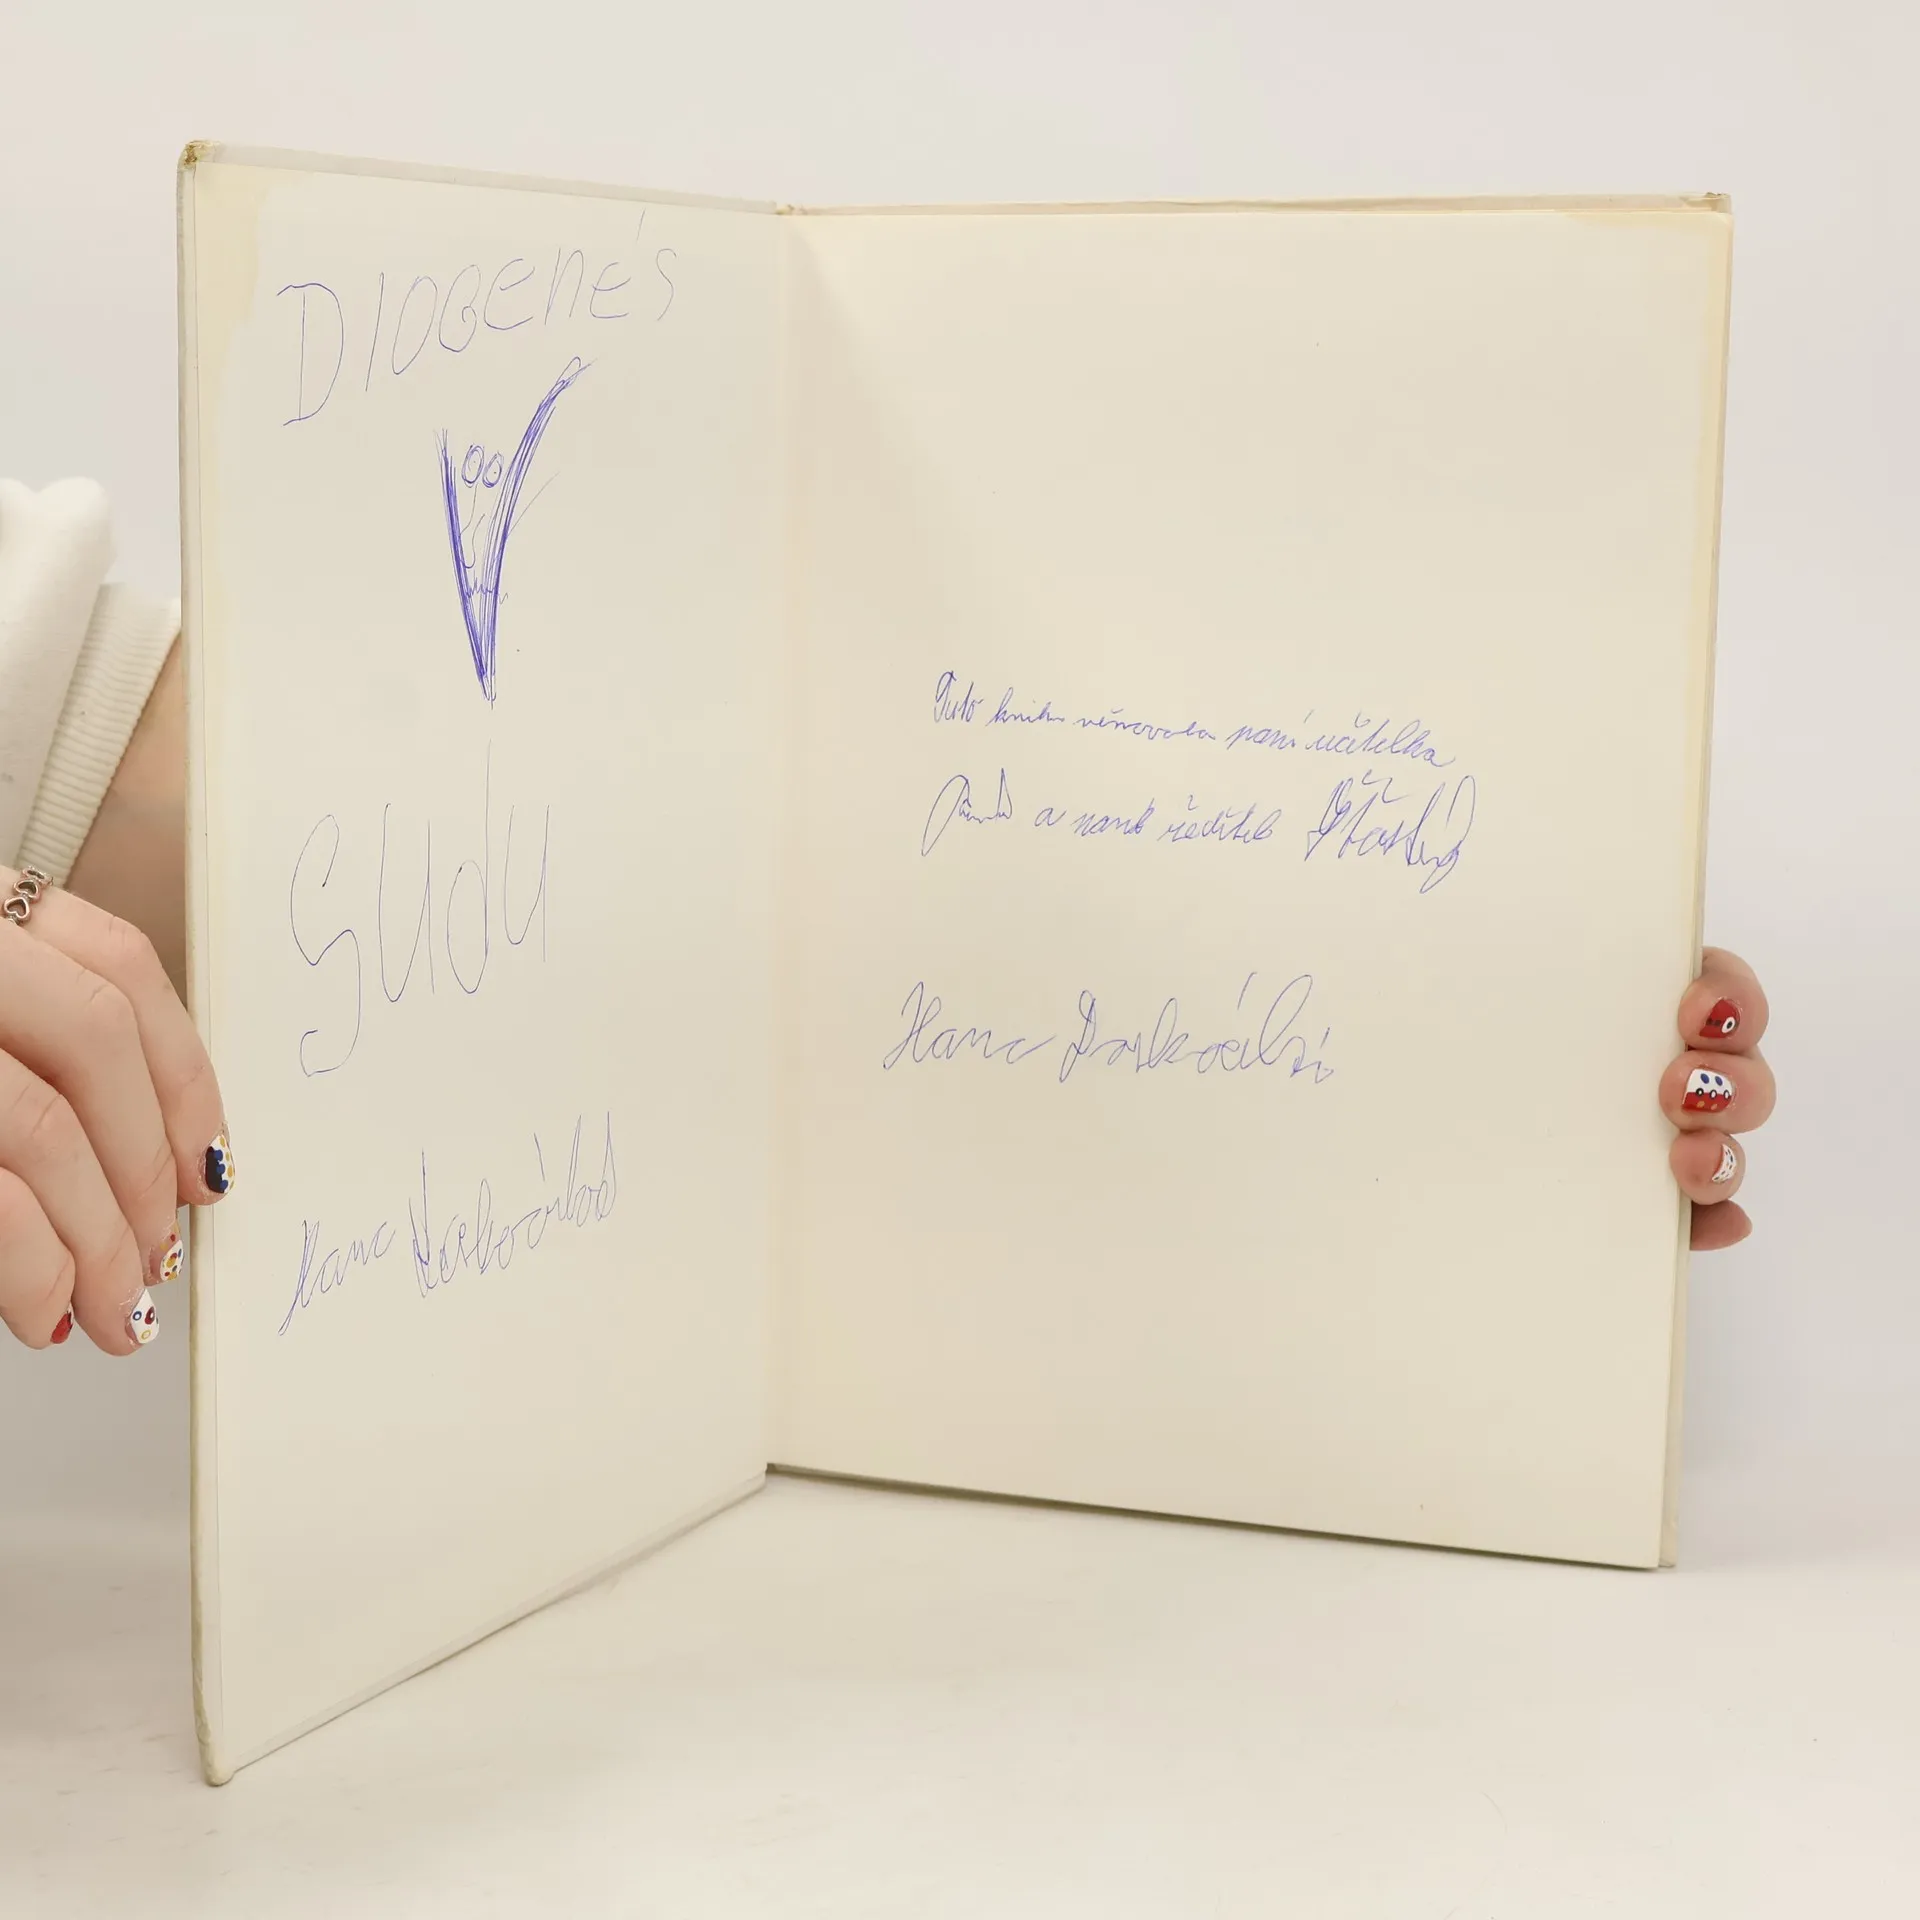 DIOGENÉS
SUDU
Hana
Tuto knihu věnovala paní učitelka
a pan ředitel Šťastný
Hana